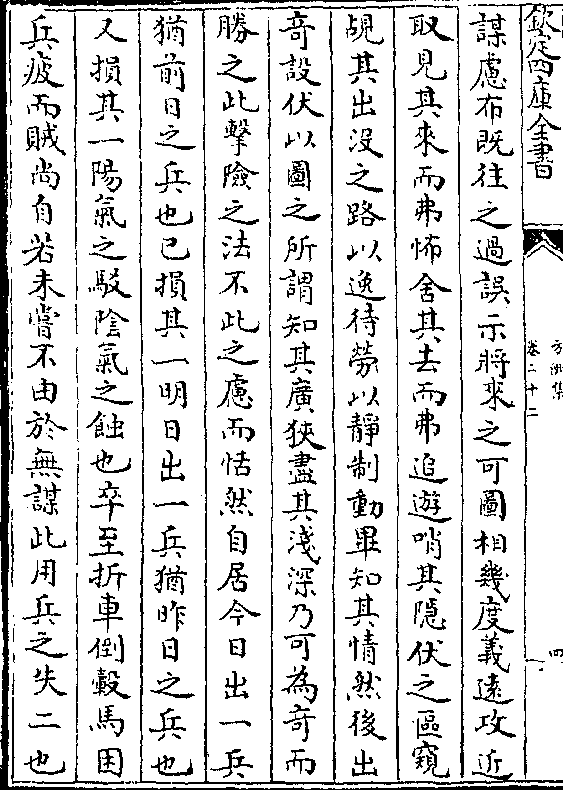 欽定四庫全書
方洲集
卷二十二
四
謀慮布既往之過誤示將來之可圖相幾度義遠攻近
取見其來而弗怖舍其去而弗追遊哨其隠伏之區窺
覘其出没之路以逸待勞以靜制動畢知其情然後出
竒設伏以圖之所謂知其廣狹盡其淺深乃可為竒而
勝之此擊險之法不此之慮而恬然自居今日出一兵
猶前日之兵也已損其一明日出一兵猶昨日之兵也
又損其一陽氣之駁陰氣之蝕也卒至折車倒轂馬困
兵疲而賊尚自若未嘗不由於無謀此用兵之失二也